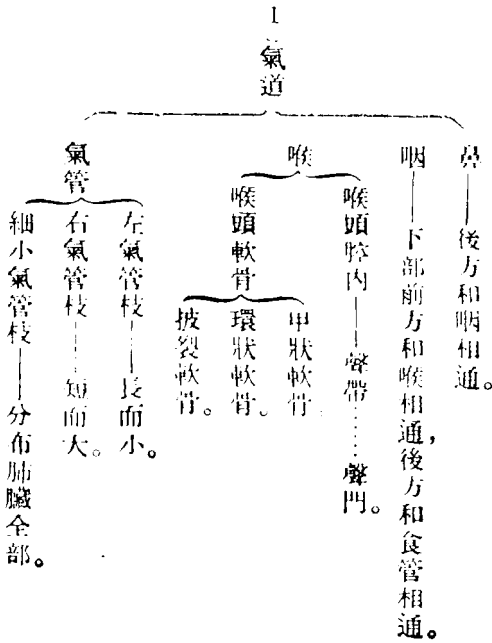 1. 氣道
鼻——後方和咽相通。
咽——下部前方和喉相通，後方和食管相通。
喉
喉頭腔內——聲帶……聲門。
喉頭軟骨
甲狀軟骨
環狀軟骨。
披裂軟骨。
氣管
左氣管枝——長而小。
右氣管枝——短而大。
細小氣管枝——分布肺臟全部。